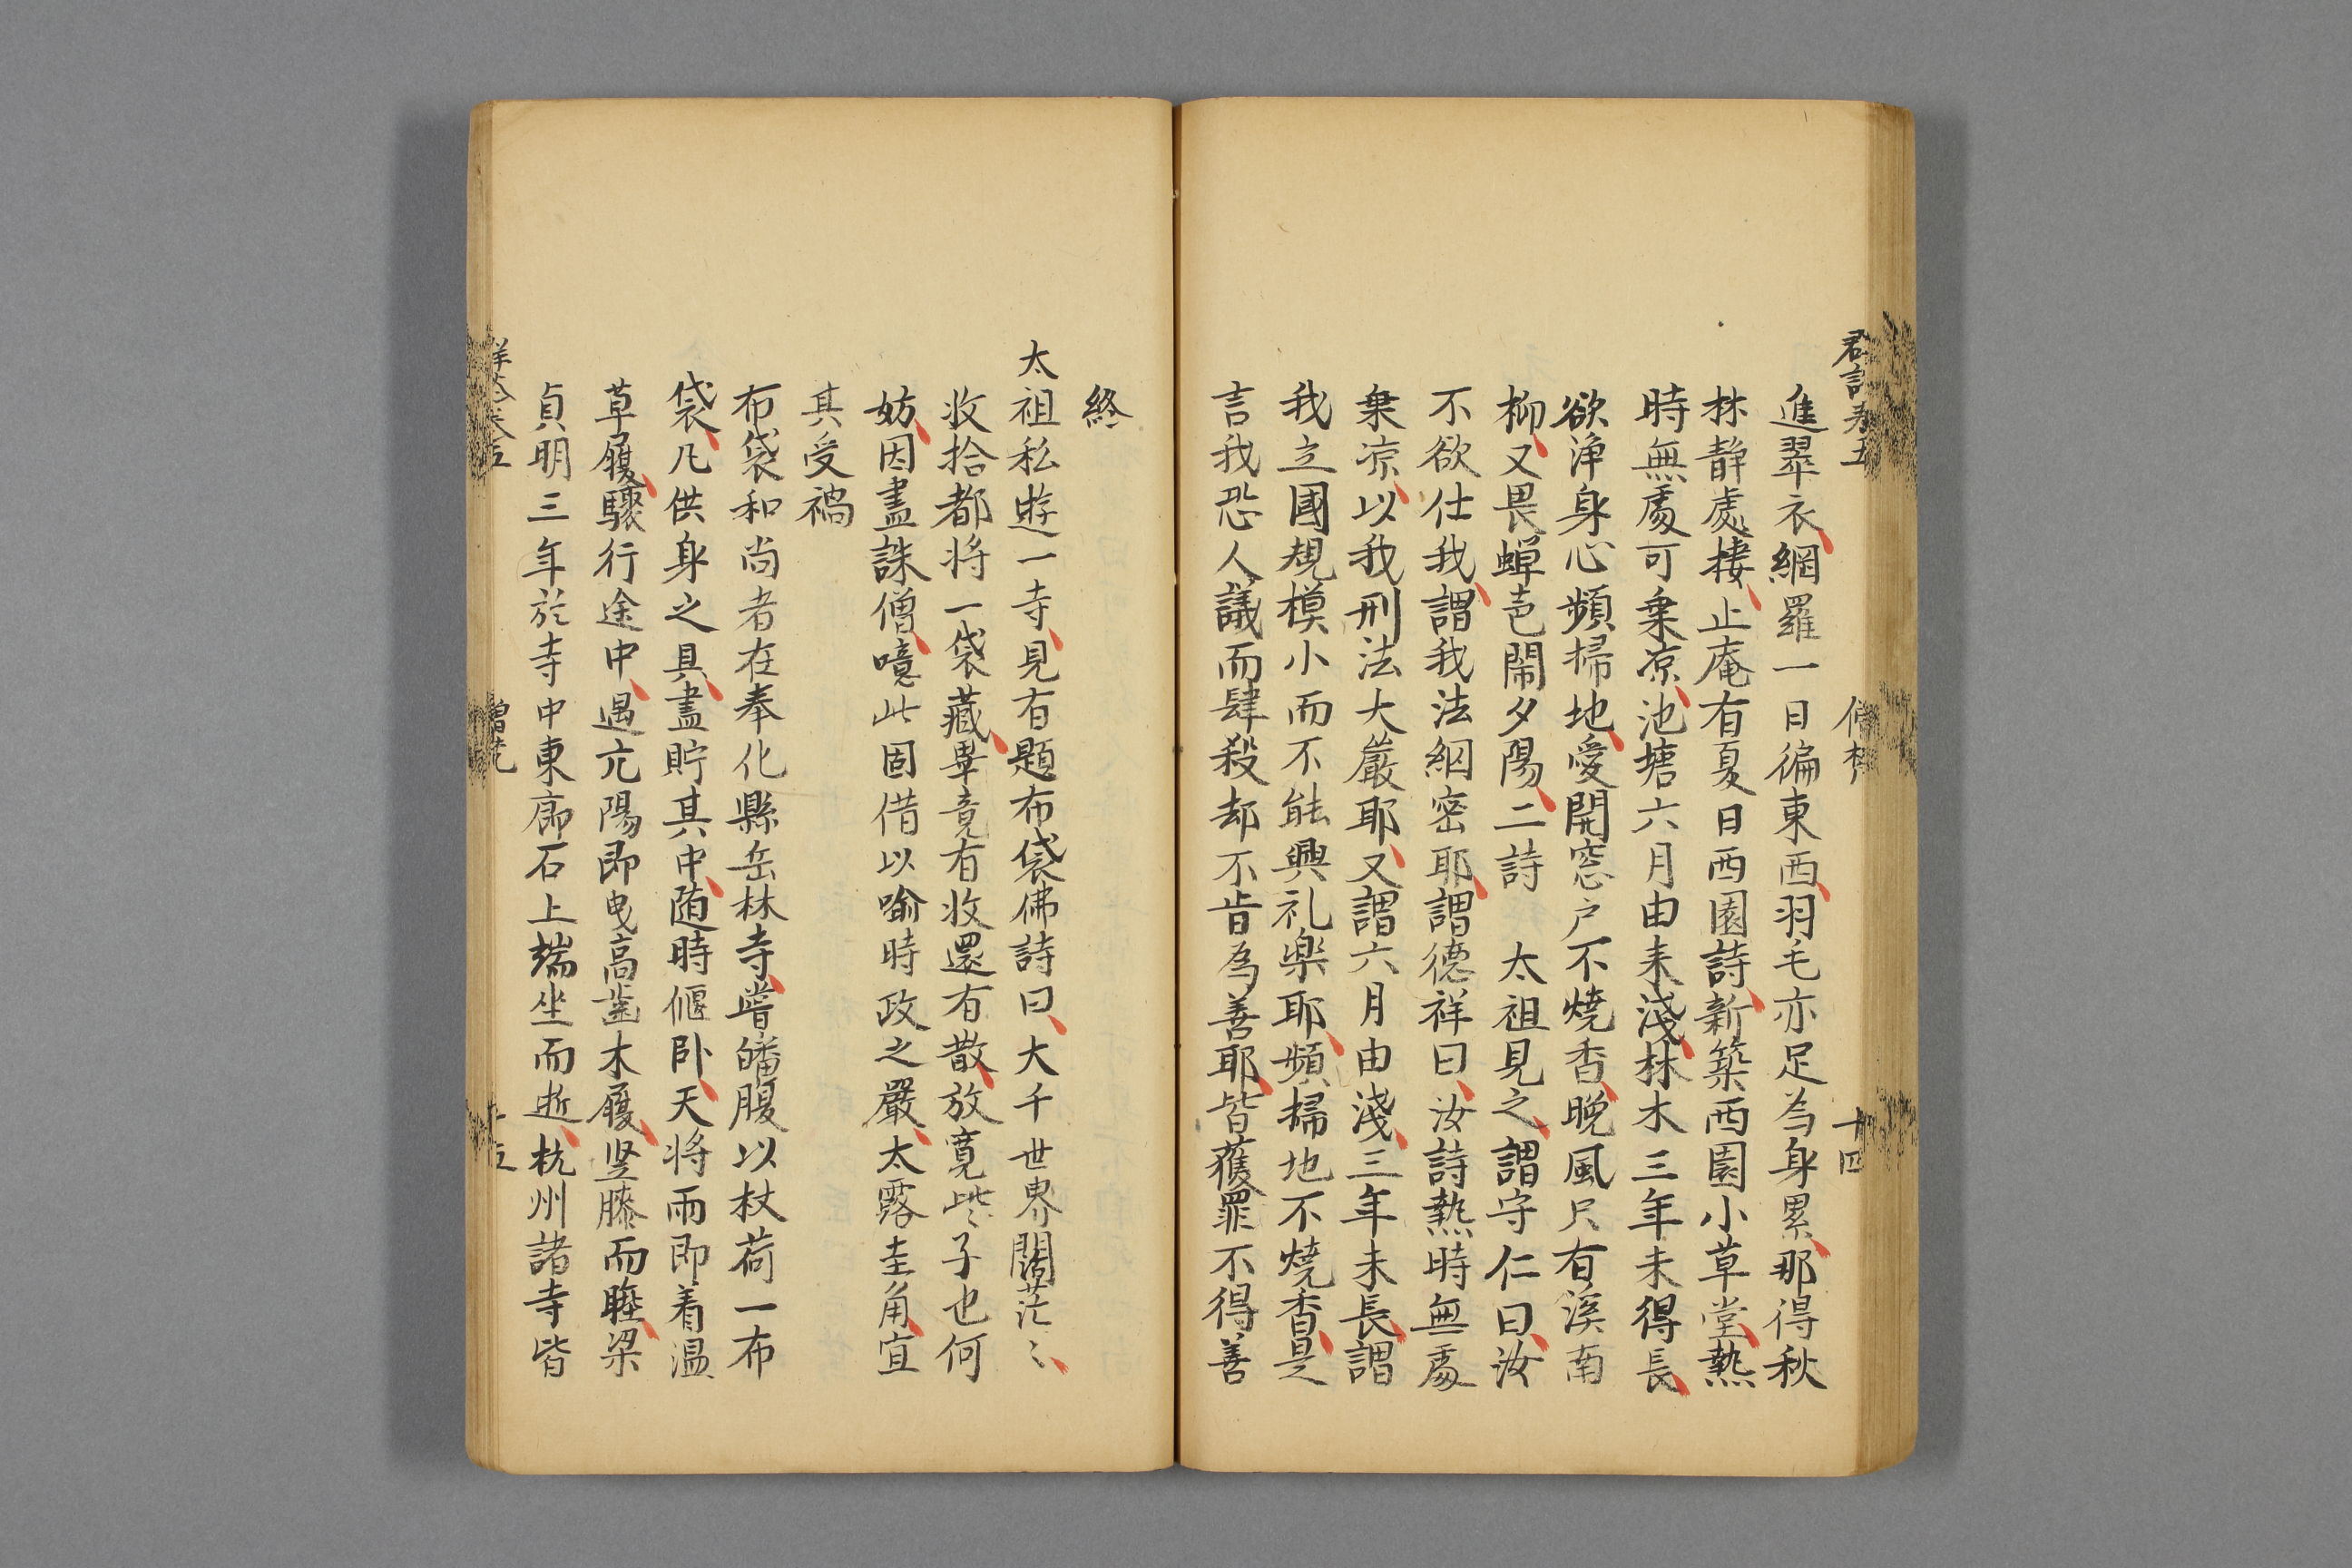 進翠衣網羅一日徧東西羽毛亦足為身累那得秋
林静處棲止庵有夏日西園詩新築西園小草堂熱
時無處可乗凉池塘六月由来淺林木三年未得長
欲浄身心頻掃地愛開窓户不燒香晩風只有溪南
柳又畏蟬声鬧夕陽二詩 太祖見之謂守仁曰汝
不欲仕我謂我法網密耶謂德祥曰汝詩熱時無處
乗凉以我刑法大嚴耶又謂六月由淺三年未長謂
我立國規模小而不能興礼楽耶頻掃地不燒香是
言我恐人議而肆殺却不肯為善耶皆獲罪不得善
終
太祖私遊一寺見有題布袋佛詩曰大千世界闊茫〻
收拾都将一袋藏畢竟有收還有散放寛些〻子也何
妨因盡誅僧噫此固借以喻時政之嚴太露圭角宜
其受禍
布袋和尚者在奉化縣岳林寺嘗皤腹以杖荷一布
袋凡供身之具盡貯其中随時偃卧天将雨即着濕
草履驟行途中遇亢陽即曳高齒木履竖膝而睡梁
貞明三年於寺中東廊石上端坐而逝杭州諸寺皆